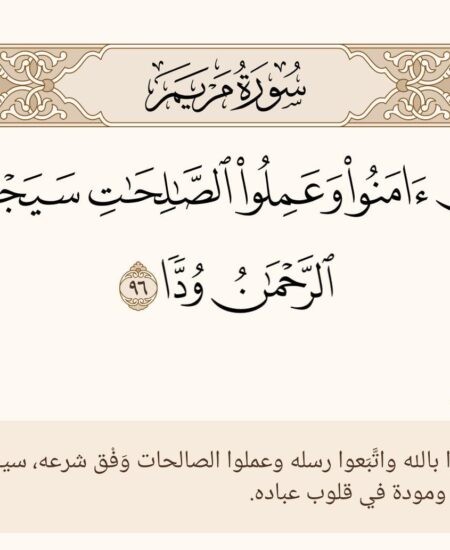 سُورَةُ مَرْيَمَ
ءَامَنُوا۟ وَعَمِلُوا۟ ٱلصَّـٰلِحَـٰتِ
ٱلرَّحْمَـٰنُ وُدًّا ٩٦
بالله واتَّبَعوا رسله وعملوا الصالحات وَفْق شرعه،
ومودة في قلوب عباده.